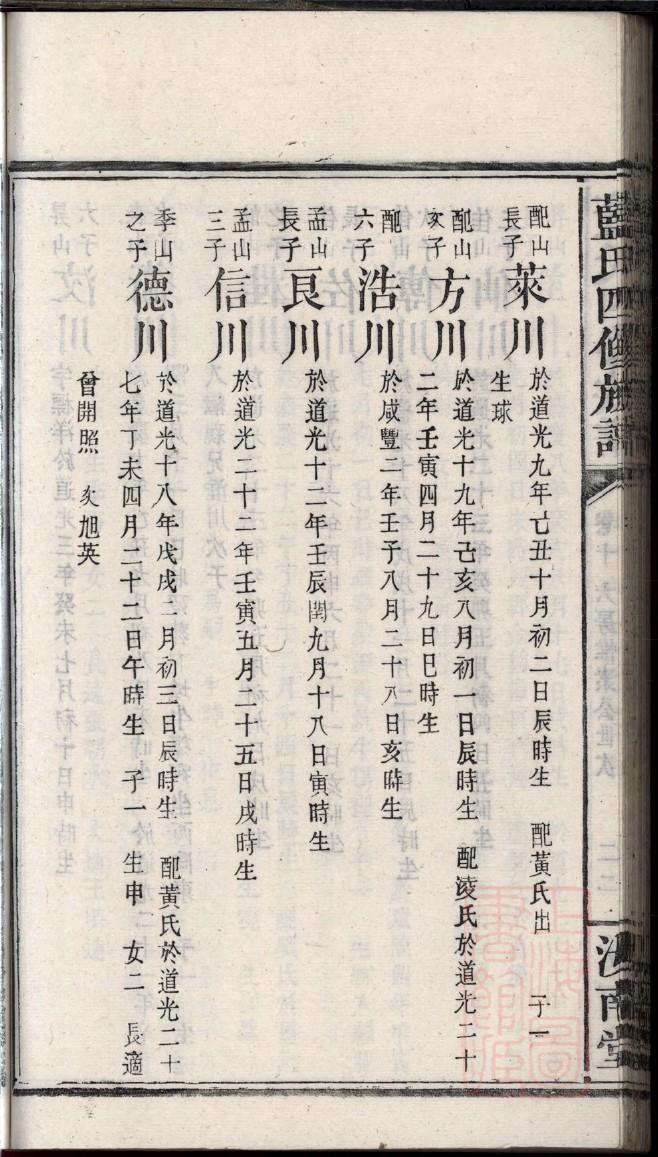 藍氏四修族譜
卷十 六房惟業公世次
二二
汝南堂
配山長子
萊川
於道光九年亡丑十月初二日辰時生 配黃氏出 子一
生球
配山次子
方川
於道光十九年己亥八月初一日辰時生 配凌氏於道光二十
二年壬寅四月二十九日巳時生
配山六子
浩川
於咸豐二年壬子八月二十八日亥時生
孟山長子
艮川
於道光十二年壬辰閏九月十八日寅時生
孟山三子
信川
於道光二十二年壬寅五月二十五日戌時生
季山之子
德川
於道光十八年戊戌二月初三日辰時生 配黃氏於道光二十
七年丁未四月二十二日午時生 子一 生申 女二 長適
曾開照 次旭英
上海圖書館藏